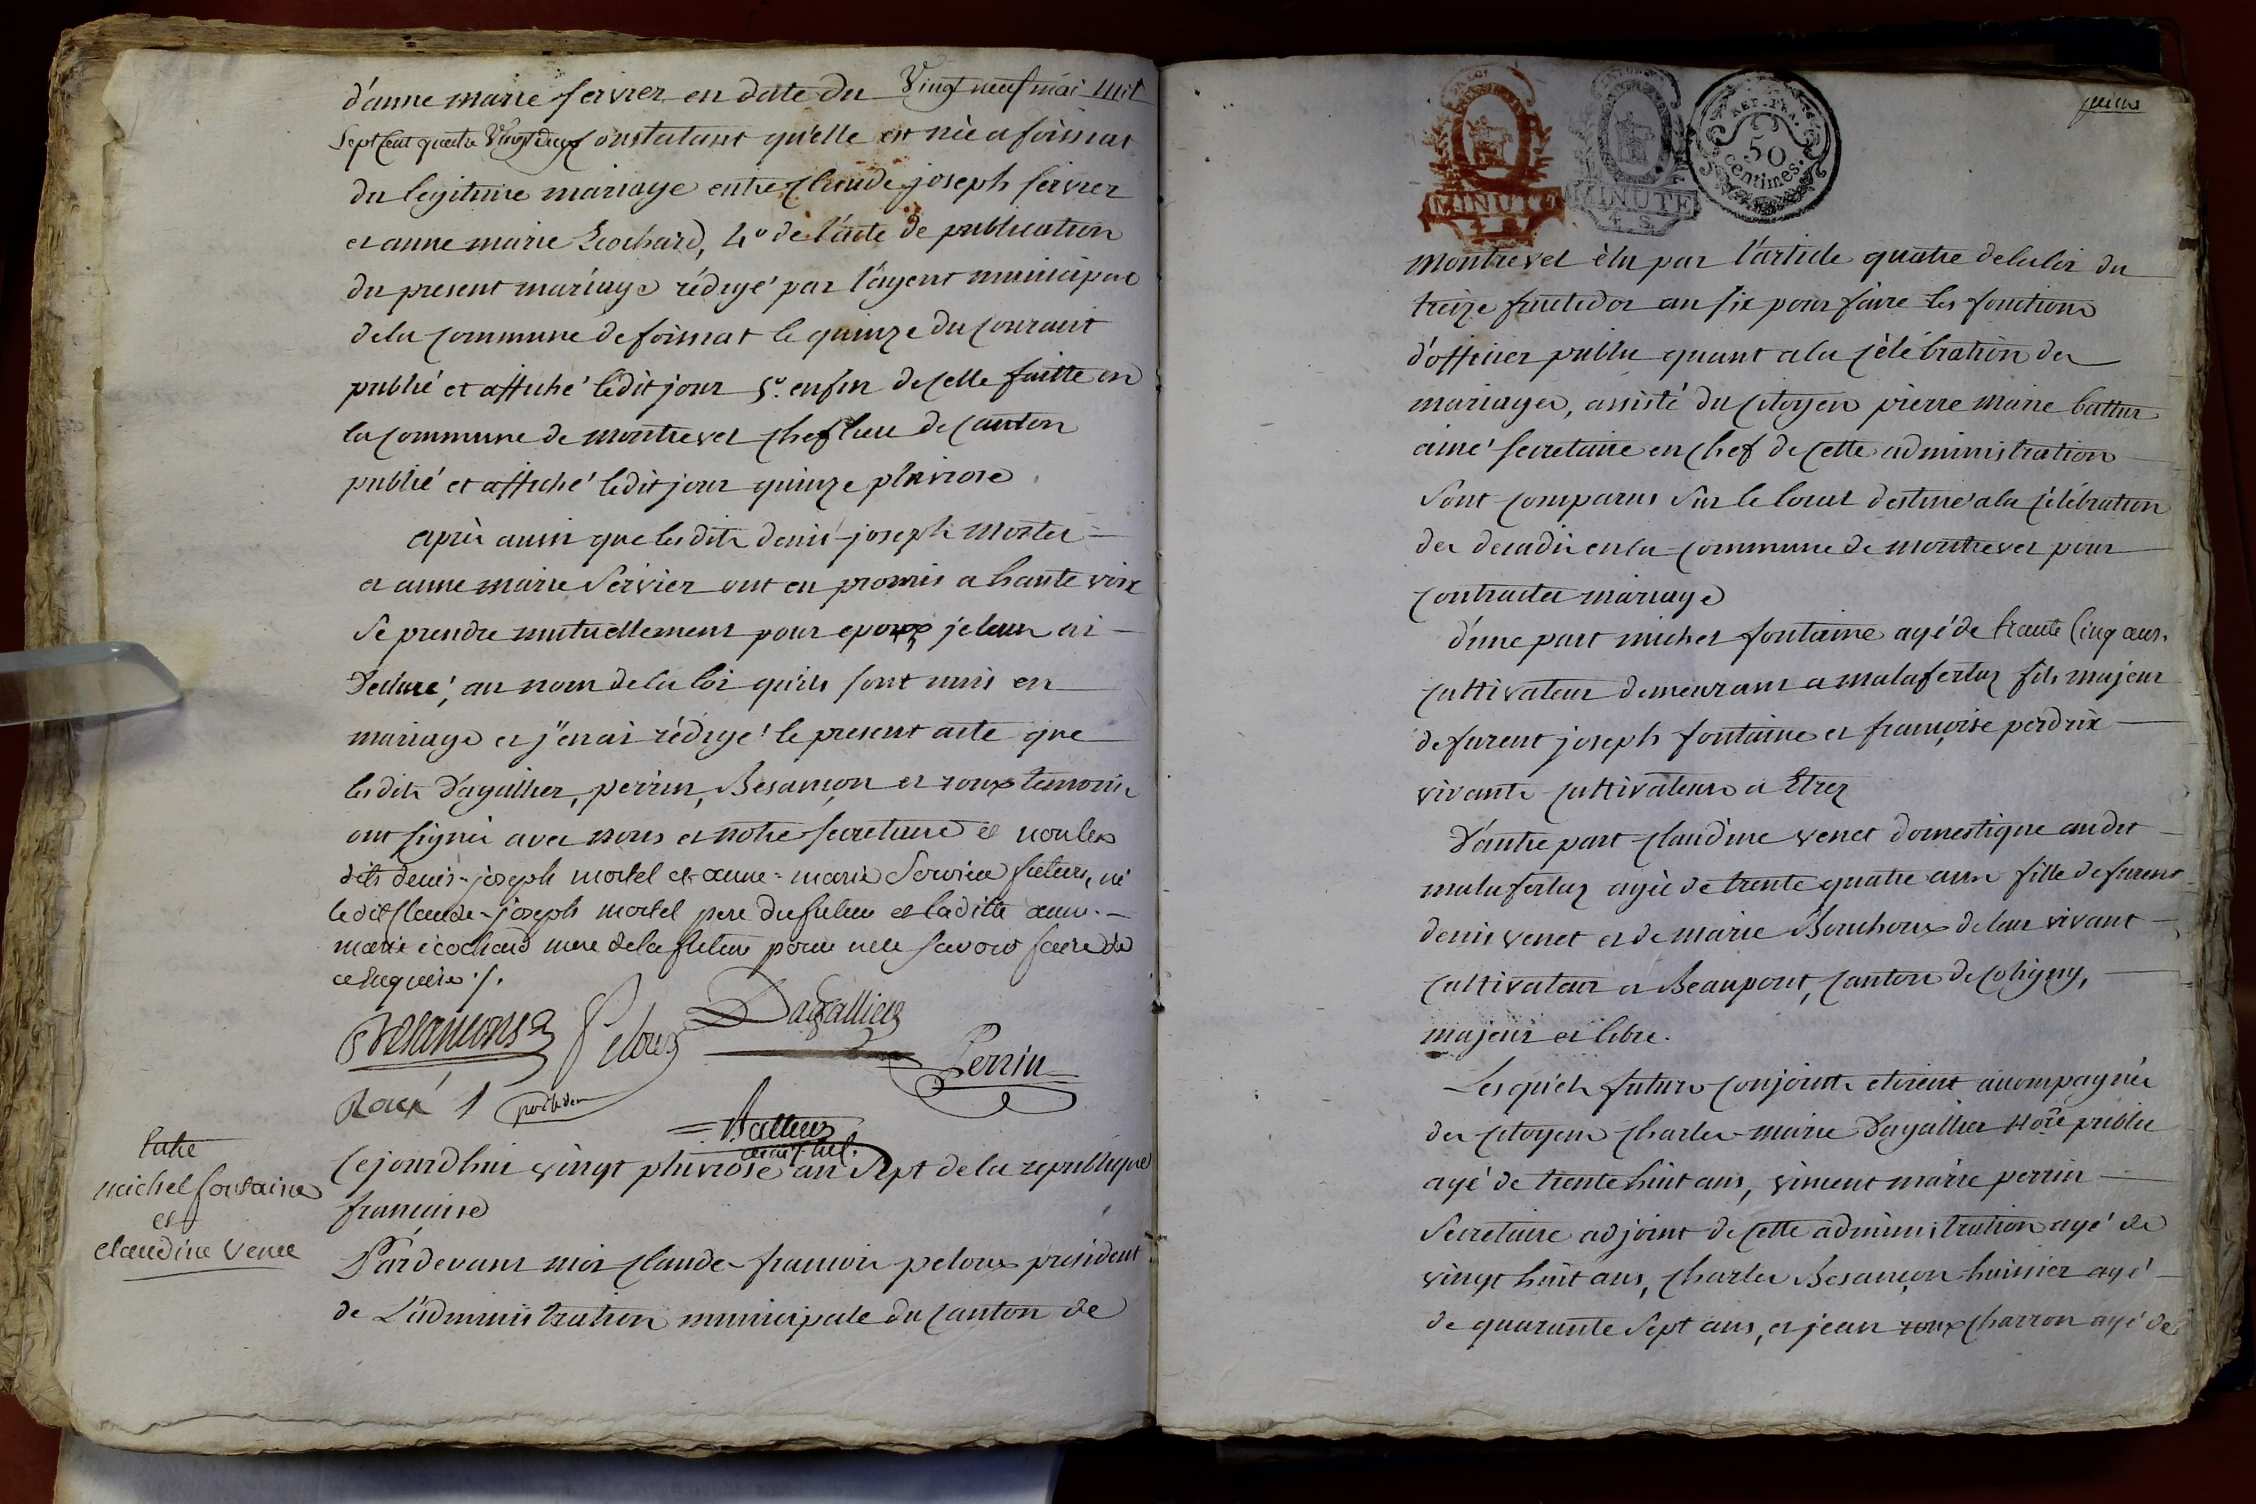 d'anne marie servier en date du Vingt neuf mai mil
Sept Cent quatre Vingt deux Constatant quelle est née a foissiat
du legitime mariage entre Claude joseph servier
et anne marie Ecochard, 4º de l'acte de publication
du present mariage rédigé par l'agent municipal
de la Commune de foissiat le quinze du Courant
publié et affiché ledit jour 5º. enfin de Celle faitte en
la Commune de montrevel Chef lieu de Canton
publié et affiché ledit jour quinze pluviose
après aussi que lesdits denis-joseph mortel
et anne marie Servier ont eu promis a haute voix
Se prendre mutuellement pour epoux je leur ai
declaré, au nom de la loi qu'ils sont unis en
mariage et j'en ai rédigé le present acte que
lesdits Dagallier, perrin, Besançon et roux temoins
ont signés avec nous et notre secretaire et non les
dits denis-joseph mortel et anne-marie Servier futurs, ni
le dit Claude-joseph mortel pere du futur et laditte anne-
marie écochard mere de la future pour ne le savoir faire de
ce Enquéris ./.
Besançons Peloux Dagallier
Perrin
Roux président
Battur
secrét. chef.
Entre
michel fontaine
et
claudine Venet
Cejourdhui vingt pluviose an Sept de la republique
francaise
Pardevant moi Claude-francois peloux president
de L'administration municipale du Canton de
MINUTE
4. S.
MINUTE
4. S.
REP. FRA.
50
centimes.
montrevel élu par l'article quatre de la loi du
treize fructidor an six pour faire les fonctions
d'officier public quant a la Célébration des
mariages, assisté du Citoyen pierre marie battur
ainé secretaire en Chef de Cette administration
Sont Comparus Sur le local destiné a la Célébration
des decadis en la Commune de montrevel pour
Contracter mariage
d'une part michel fontaine agé de trante Cinq ans,
Cultivateur demeurant a malafertaz fils majeur
de furent joseph fontaine et françoise perdrix
vivants Cultivateurs a Etrez
D'autre part Claudine venet domestique audit
malafertaz agée de trente quatre ans fille de furent
denis venet et de marie Bouchoux de leur vivant
Cultivateurs a Beaupont, Canton de Coligny,
majeurs et libre.
Lesquels futurs Conjoints etoient accompagnés
des Citoyens Charles-marie Dagallier Nore public
agé de trente huit ans, vincent marie perrin
Secretaire adjoint de Cette administration agé de
vingt huit ans, Charles Besançon huissier agé
de quarante Sept ans, et jean roux Charron agé de